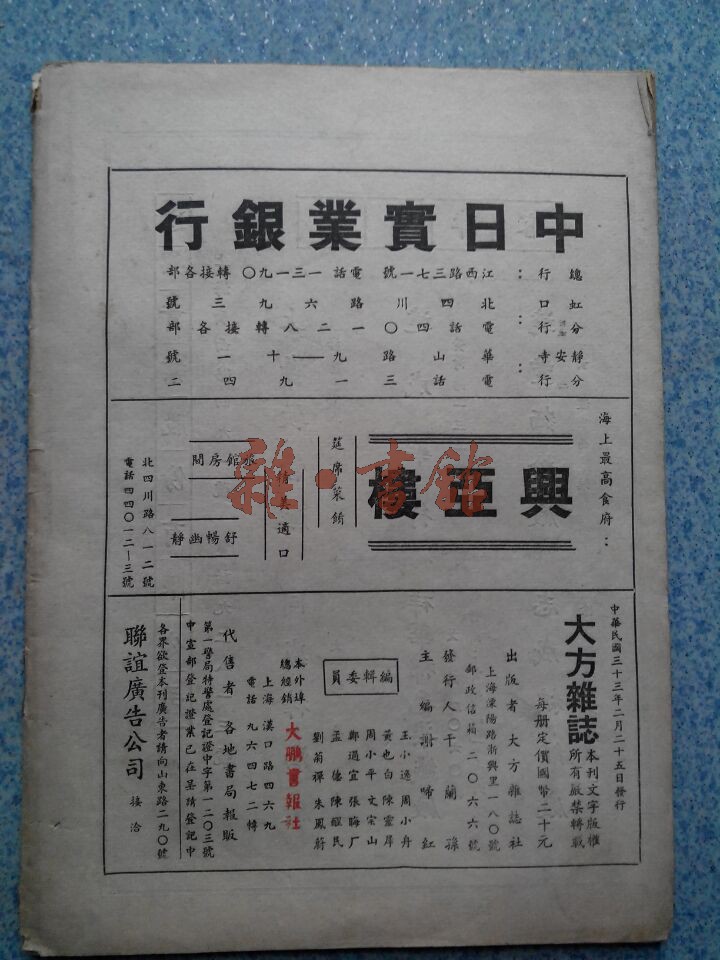 中日實業銀行
總行：江西路三七一號 電話一三一九〇轉接各部
虹口分行：北四川路六九三號
電話四〇一二八轉接各部
靜安寺分行：華山路九一—十一號
電話三一九四二
海上最高食府：
興亞樓
筵席菜餚
適口
旅館房間
舒暢幽靜
北四川路八一二號
電話四四〇一二—三號
中華民國三十三年二月二十五日發行
大方雜誌
本刊文字版權
所有嚴禁轉載
每册定價國幣二十元
出版者 大方雜誌社
上海溧陽路浙興里一八〇號
郵政信箱二〇六六號
發行人 干蘭蓀
主編 謝啼紅
編輯委員
王小逸 周小舟
黃也白 陳靈犀
周小平 文宗山
鄭過宜 張晦厂
孟德 陳蝦民
劉蒻禪 朱鳳蔚
本外埠
總經銷 大鵬書報社
上海漢口路四六九
電話九六四七二轉
代售者 各地書局報販
第一警局特警處登記證中字第一二〇三號
中宣部登記證業已在呈請登記中
各界欲登本刊廣告者請向山東路二九〇號
聯誼廣告公司 接洽
雜·書館